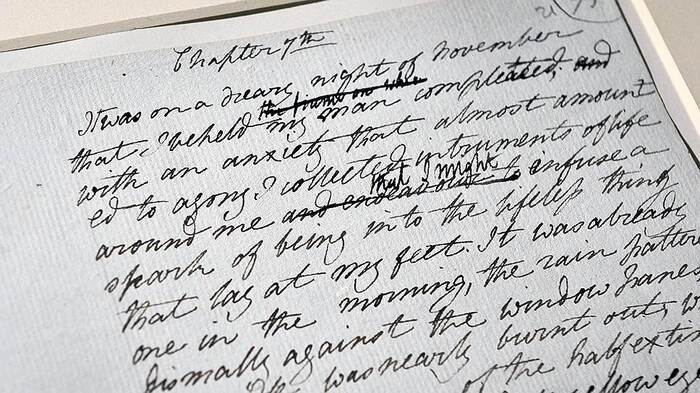 Chapter 7th
It was on a dreary night of November
the frame on whic
that I beheld my man compleated; and
with an anxiety that almost amount
ed to agony I collected instruments of life
that I might
around me and endeavour to infuse a
spark of being into the lifeless thing
that lay at my feet. It was already
one in the morning, the rain patter
dismally against the window panes
was nearly burnt out,
of the half extin
yellow eye